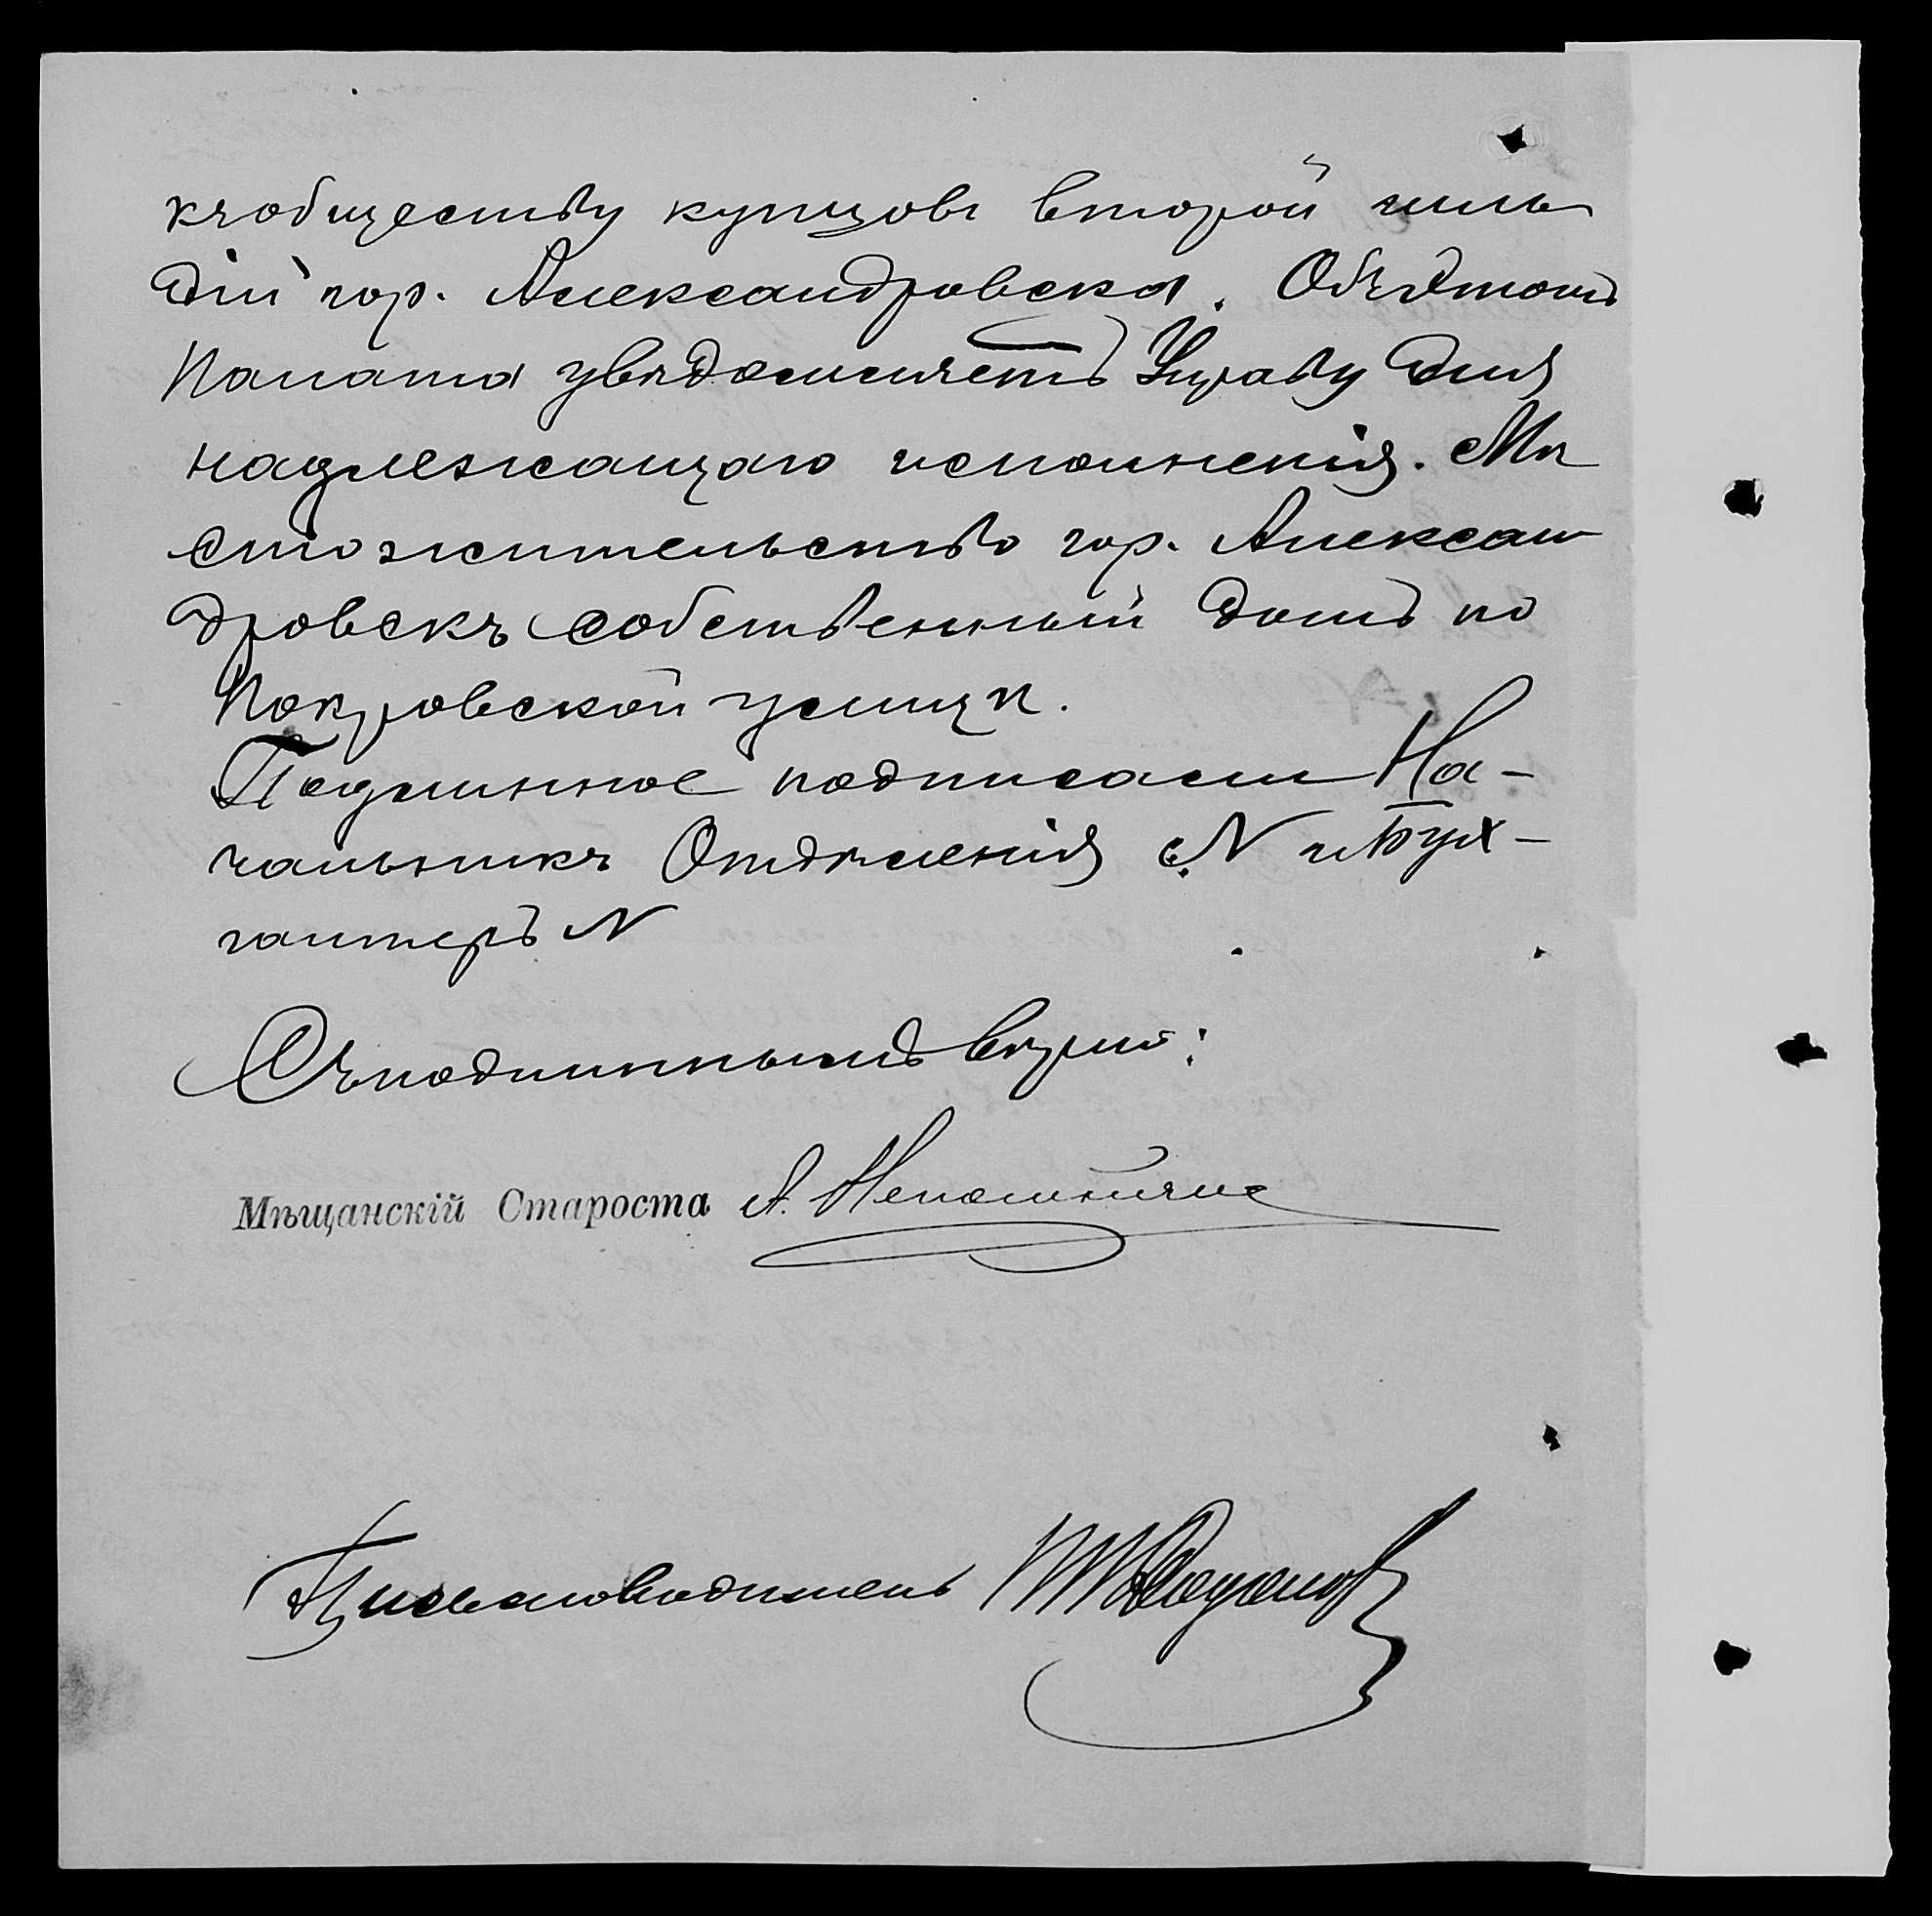 къ обществу купцовъ второй гиль
діи гор. Александровска. Объ этомъ
Палата увѣдомляетъ Управу для
надлежащаго исполненія. Мѣ
стожительство гор. Алексан
дровскъ собственный домъ по
Покровской улицѣ.
Подлинное подписали На-
чальникъ Отдѣленія N и Бух-
галтеръ N
Съ подлиннымъ вѣрно:
Мѣщанскій Староста А.
Письмоводитель